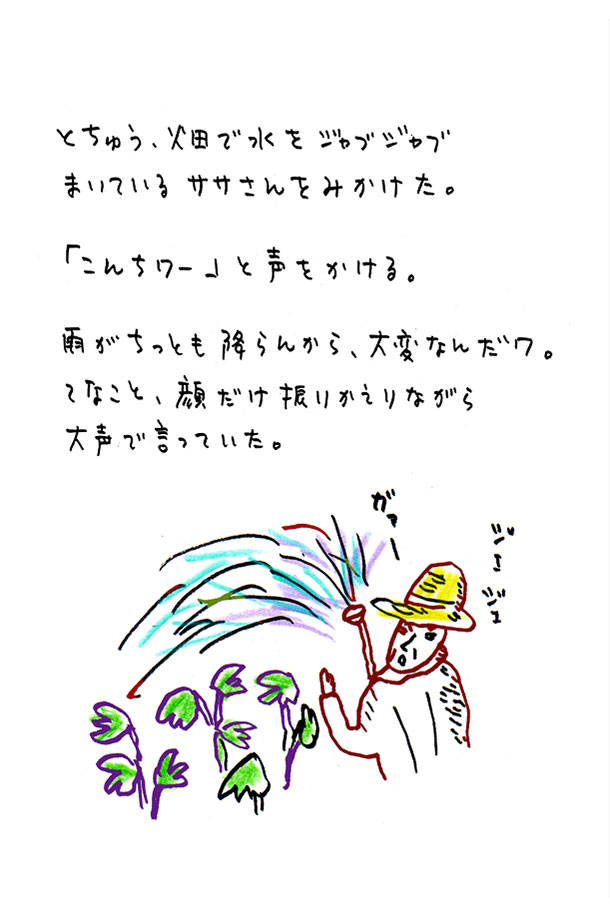 とちゅう、畑で水をジャブジャブ
まいているササさんをみかけた。
「こんちワー」と声をかける。
雨がちっとも降らんから、大変なんだワ。
てなこと、顔だけ振りかえりながら
大声で言っていた。
ガァー
ジージュ